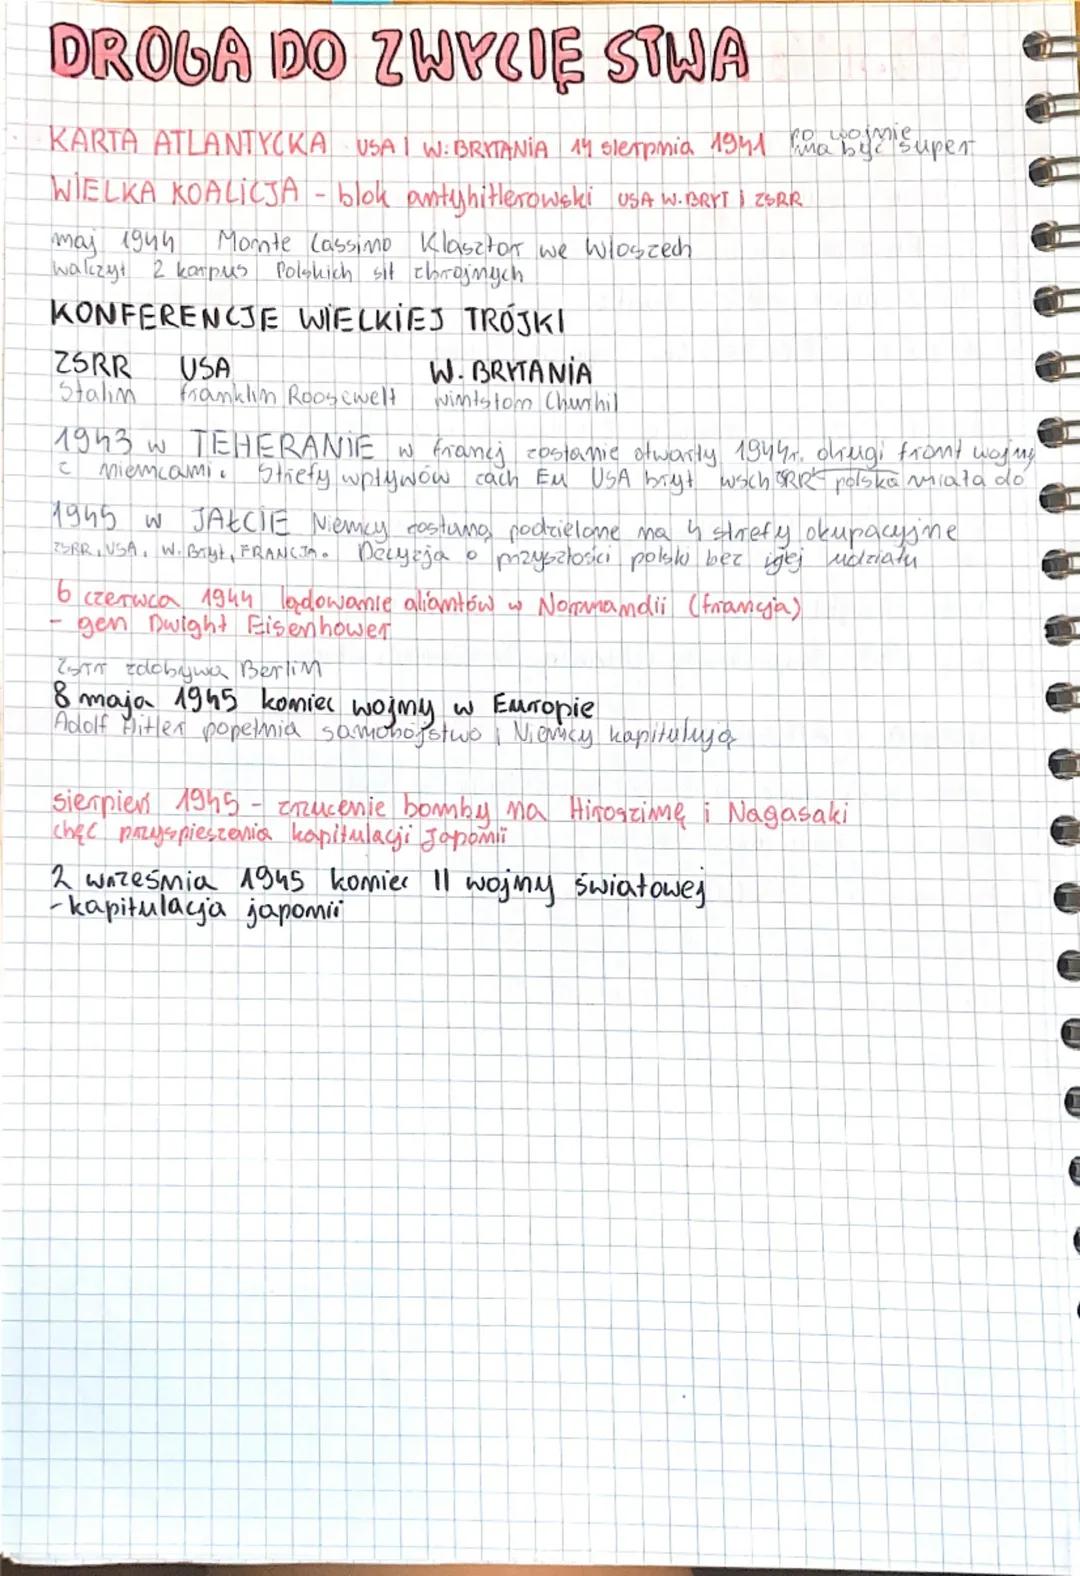 DROGA DO ZWYCIĘSTWA
KARTA ATLANTYCKA USA I W. BRYTANIA 14 sierpnia 1941 po wojnie ma być super
WIELKA KOALICJA - blok antyhitlerowski USA W. BRYT I ZSRR
maj 1944 Monte Cassino Klasztor we Włoszech
walczył 2 korpus Polskich sił zbrojnych
KONFERENCJE WIELKIEJ TRÓJKI
ZSRR USA W. BRYTANIA
Stalin franklin Roosewelt wintston Churhil
1943 w TEHERANIE w francj zostanie otwarty 1944r. drugi front wojny
z niemcami. Strefy wpływów zach Eu USA bryt wsch ZSRR polska miała do
1945 w JAŁCIE Niemcy zostaną podzielone na 4 strefy okupacyjne
ZSRR, USA, W. Bryt, FRANCJA. Decyzja o przyszłości polski bez jej udziału
6 czerwca 1944 lądowanie aliantów w Normandii (francja)
- gen Dwight Eisenhower
ZSRR zdobywa Berlin
8 maja 1945 koniec wojny w Europie
Adolf Hitler popełnia samobójstwo i Niemcy kapitulują
sierpień 1945 - zrzucenie bomby na Hiroszimę i Nagasaki
chęć przyspieszenia kapitulacji Japonii
2 września 1945 koniec II wojny światowej
- kapitulacja japonii